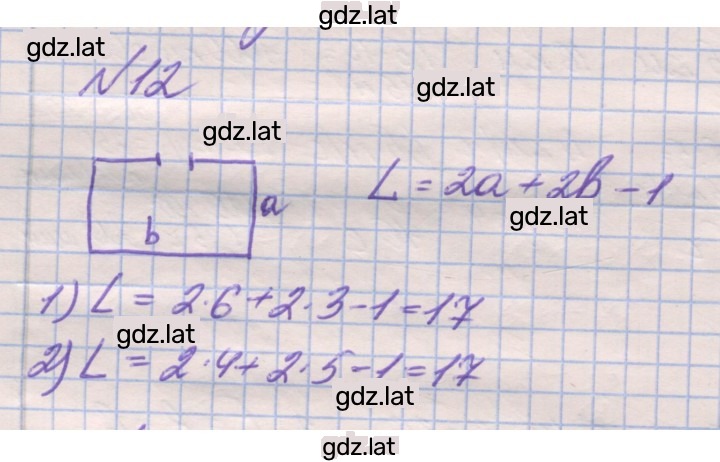 gdz.lat
gdz.lat
№12
gdz.lat
gdz.lat
a
b
L = 2a + 2b - 1
gdz.lat
1) L = 2·6 + 2·3 - 1 = 17
gdz.lat
2) L = 2·4 + 2·5 - 1 = 17
gdz.lat
gdz.lat